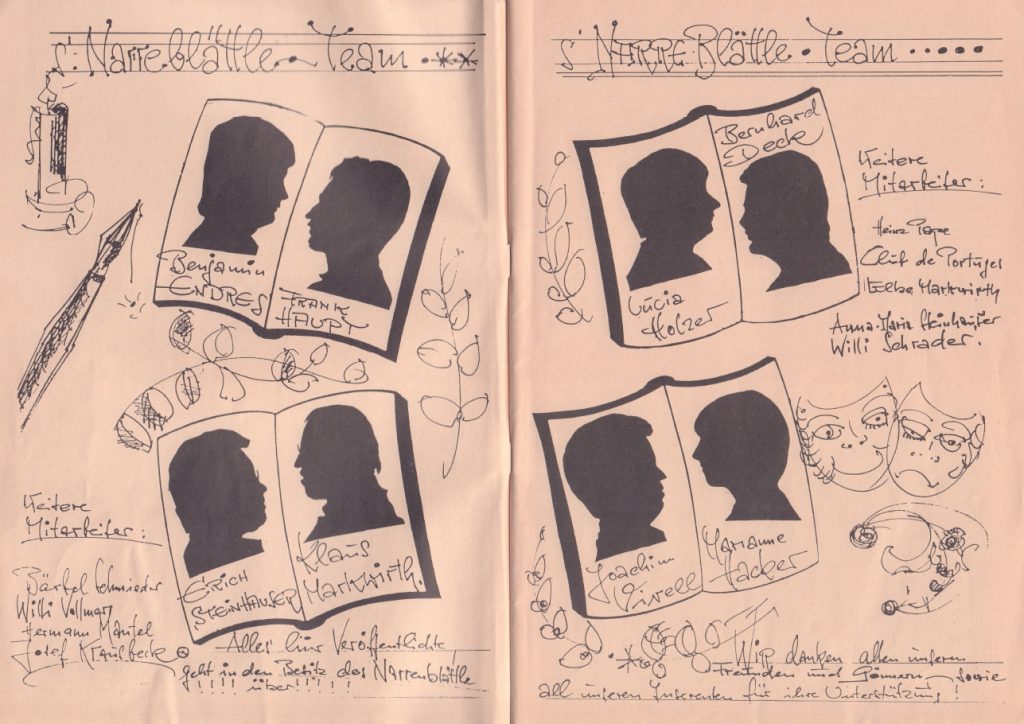 s' Narreblättle - Team
Benjamin
ENDRES
FRANK
HAUPT
ERICH
STEINHAUSER
Klaus
Markwirth.
Weitere
Mitarbeiter:
Bärbel Schmieder
Willi Vollmar
Hermann
Josef
Alles hier Veröffentlichte
geht in den Besitz des Narrenblättle
!!!! über!!!!!
s' NARRE Blättle - Team
Lucia
Holzer
Bernhard
Decker
Joachim
Marianne
Hacker
Weitere
Mitarbeiter:
Heinz Pape
Club de Portuges
Elke Markwirth
Anna-Maria Steinhauser
Willi Schrader.
Wir danken allen unseren
Freunden und Gönnern sowie
all unseren Inserenten für ihre Unterstützung!